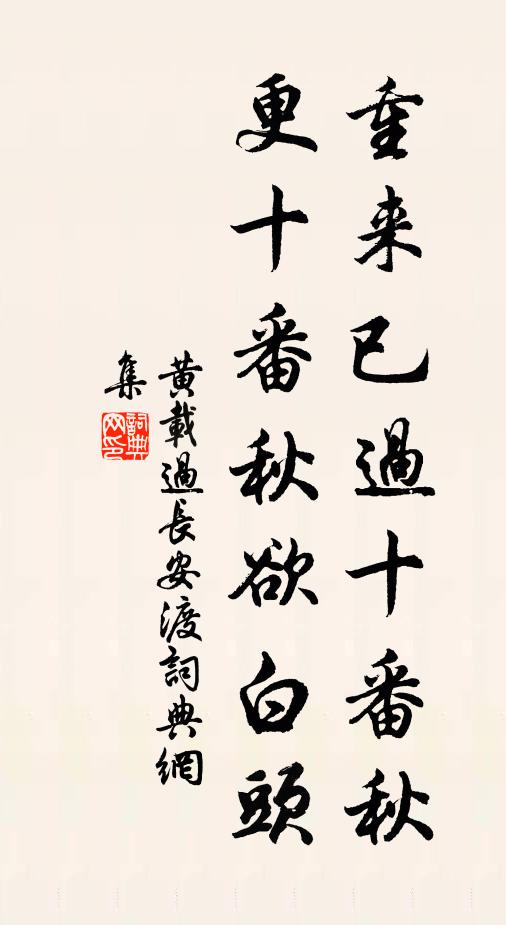 重来已過十番秋
更十番秋欲白頭
黄載過長安渡詞典網
集
詞典网印